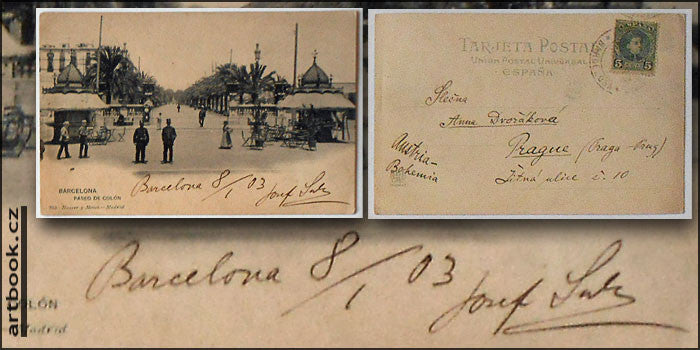 BARCELONA
PASEO DE COLÓN
Hauser y Menet.-Madrid
Barcelona 8/1 03 Josef Suk
TARJETA POSTAL
UNION POSTAL UNIVERSAL
ESPAÑA
5 5
Slečna
Anna Dvořáková
Prague (Praga-Prag)
Austria-
Bohemia
Žitná ulice č. 10
artbook.cz
OLÓN
Madrid
Barcelona 8/1 03 Josef Suk